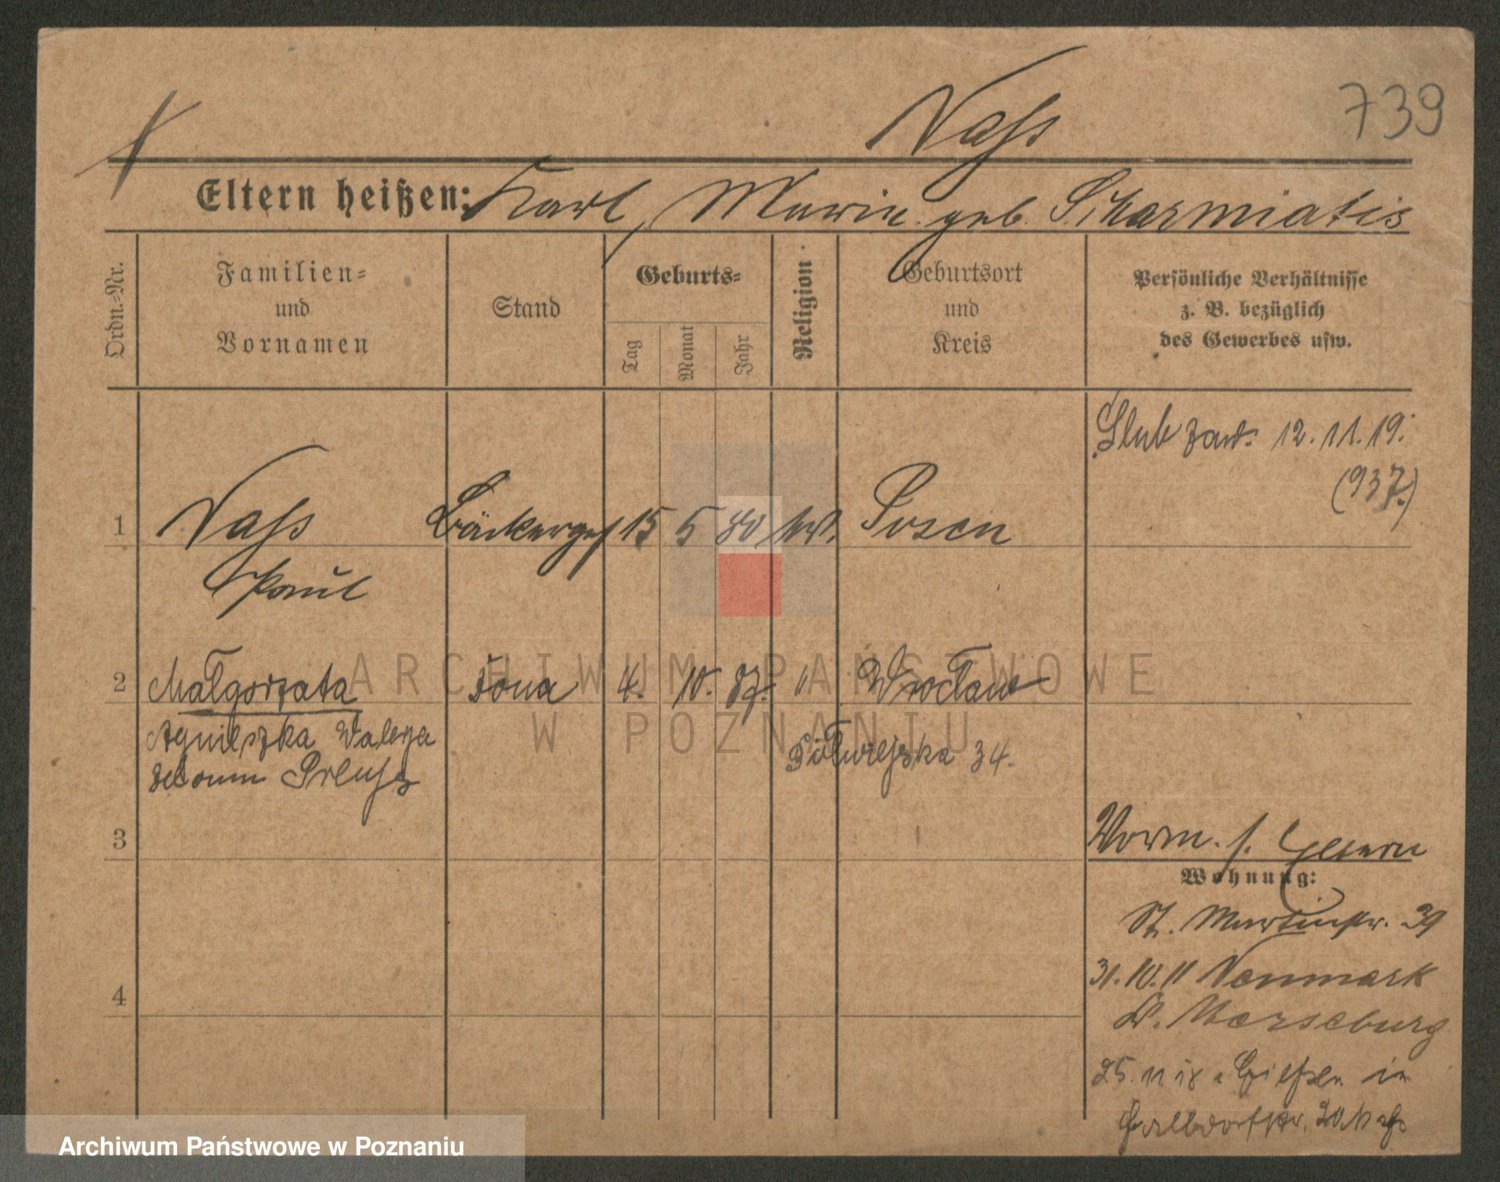 739
Naß
Eltern heißen: Karl, Marie geb. Skarmiatis
Ordn.=Nr.
Familien=
und
Vornamen
Stand
Geburts=
Tag
Monat
Jahr
Religion
Geburtsort
und
Kreis
Persönliche Verhältnisse
z. B. bezüglich
des Gewerbes usw.
Slub zaw. 12.11.19.
(937.)
1 Naß Bäckerges 15 5 80 Posen
Paul
2 Małgorzata żona 4. 10. 87. " Wrocław
Agnieszka Walerja
Preuß
Półwiejska 34.
3
Vorm. s. Eltern
Wohnung:
St. Martinstr. 39
31.10.11
4
Merseburg
25. 11 18 Gießen in
ARCHIWUM PAŃSTWOWE
W POZNANIU
Archiwum Państwowe w Poznaniu